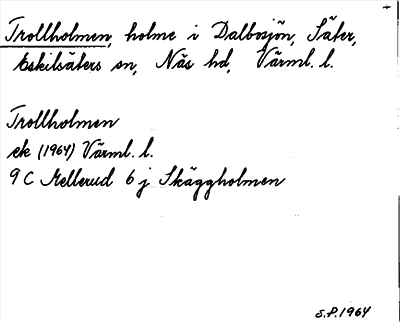 Trollholmen, holme i Dalbosjön, Säter,
Eskilsäters sn, Näs hd, Värml. l.
Trollholmen
ek (1964) Värml. l.
9 C Mellerud 6 j Skäggholmen
S.P. 1964